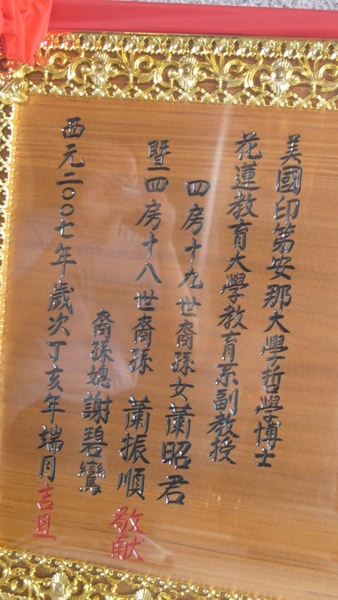 美國印第安那大學哲學博士
花蓮教育大學教育系副教授
四房十九世裔孫女蕭昭君
暨四房十八世裔孫蕭振順
裔孫媳謝碧鸞
敬獻
西元二〇〇七年歲次丁亥年端月吉旦